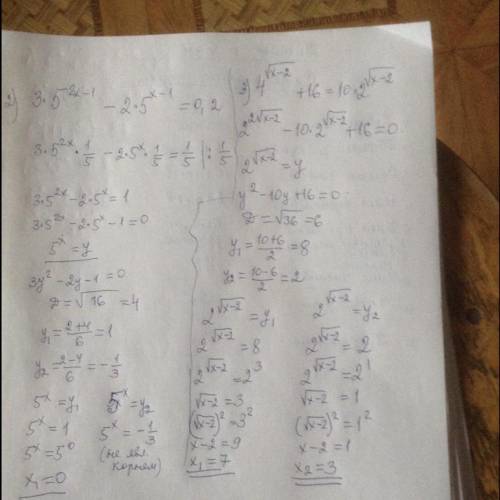 2) 3·5^{2x-1} - 2·5^{x-1} = 0,2
3·5^{2x}·1/5 - 2·5^x·1/5 = 1/5 |: 1/5
3·5^{2x} - 2·5^x = 1
3·5^{2x} - 2·5^x - 1 = 0
5^x = y
3y² - 2y - 1 = 0
D = √16 = 4
y₁ = (2+4)/6 = 1
y₂ = (2-4)/6 = -1/3
5^x = y₁ 5^x = y₂
5^x = 1 5^x = -1/3
5^x = 5^0 (не явл.
x₁ = 0 корнем)
3) 4^{√x-2} + 16 = 10·2^{√x-2}
2^{2√x-2} - 10·2^{√x-2} + 16 = 0
2^{√x-2} = y
y² - 10y + 16 = 0
D = √36 = 6
y₁ = (10+6)/2 = 8
y₂ = (10-6)/2 = 2
2^{√x-2} = y₁ 2^{√x-2} = y₂
2^{√x-2} = 8 2^{√x-2} = 2
2^{√x-2} = 2³ 2^{√x-2} = 2¹
√x-2 = 3 √x-2 = 1
(√x-2)² = 3² (√x-2)² = 1²
x-2 = 9 x-2 = 1
x₁ = 7 x₂ = 3